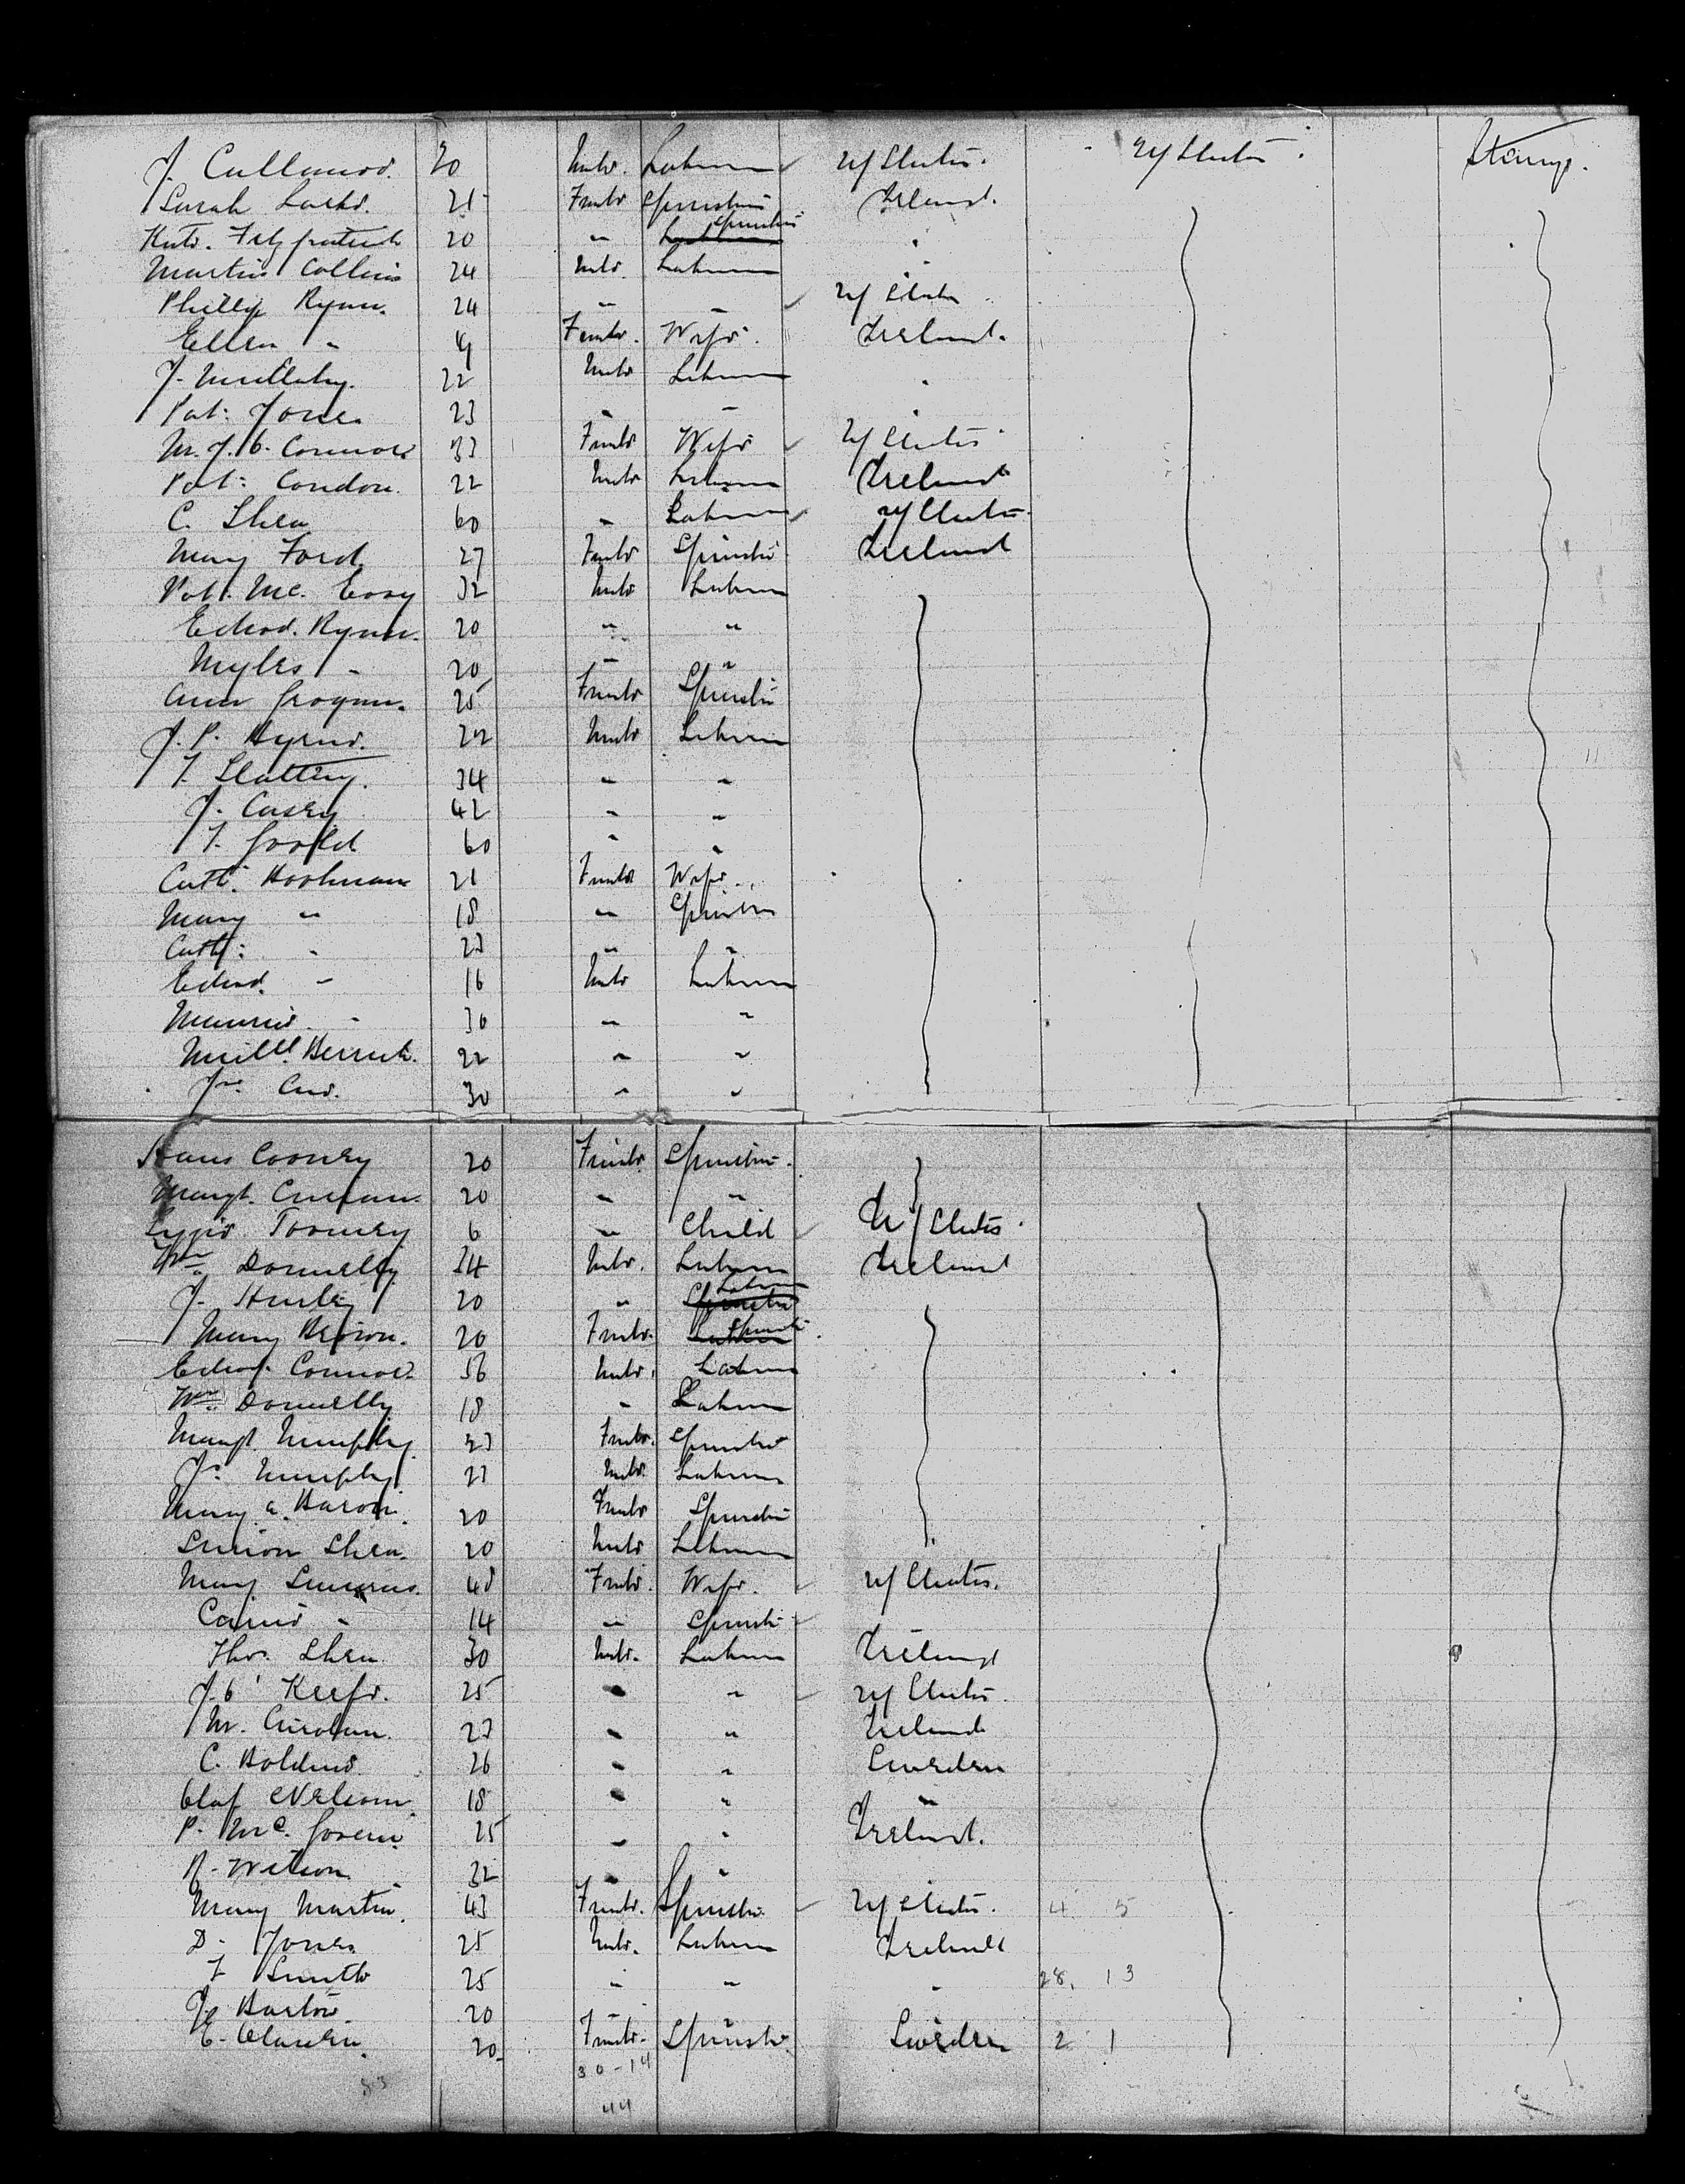 J. Cullanor. 20 Male. Laborer U/States. U/States Steerage.
Sarah 21 Female Spinster Ireland.
Kate. Fitzpatrick 20 " Spinster "
Martin Collins 24 Male Laborer "
Phillip Ryan. 24 " " U/States
Ellen " Female. Wife. Ireland.
J. Mullaby. 22 Male Laborer "
Pat: Jones 23 " " "
M. J. O. Connor 33 Female Wife U/States
Pat: Condon. 22 Male Laborer Ireland
C. Shea 60 " Laborer U/States
Mary Ford 27 Female Spinster Ireland
Pat. Mc. Evoy 32 Male Laborer
Edwd. Ryan. 20 " "
Myles " 20 " "
Ann Grogan. 25 Female Spinster
J. P. Byrne. 22 Male Laborer
T. Slattery. 34 " "
J. Casey 42 " "
T. 60 " "
Cath: Hoolman 21 Female Wife
Mary " 18 " Spinster
Cath: " 23 " "
Edwd. " 16 Male Laborer
Maurice " 30 " "
22 " "
30 " "
Cooney 20 Female Spinster.
Margt. Curran. 20 " "
Lizzie Toomey 6 " Child U/States
Wm. Donnelly 34 Male. Laborer Ireland
J. Hurley 20 " Laborer
Mary Brown. 20 Female. Spinster
Edwd. Connor 56 Male. Laborer
Wm. Donnelly 18 " Laborer
Margt. Murphy 23 Female. Spinster
Js. Murphy 23 Male. Laborer
Mary A. Baron. 20 Female Spinster
Simon Shea. 20 Male Laborer
Mary 48 Female. Wife. U/States.
Carrie " 14 " Spinster
Thos. Shea 30 Male. Laborer Ireland
J. O'Keefe. 25 " " U/States
M. Curolan. 23 " " Ireland
C. Boldend 26 " " Sweden
Olaf Nelson 18 " " "
P. McGovern 25 " " Ireland.
R. Wilson 32 " "
Mary Martin. 43 Female. Spinster U/States. 4 5
D. Jones 25 Male. Laborer Ireland
T. Smith 25 " " " 28. 13
J. Barton. 20 " "
E. Clausen. 20. Female. Spinster. Sweden 2 1
53 30-14
44